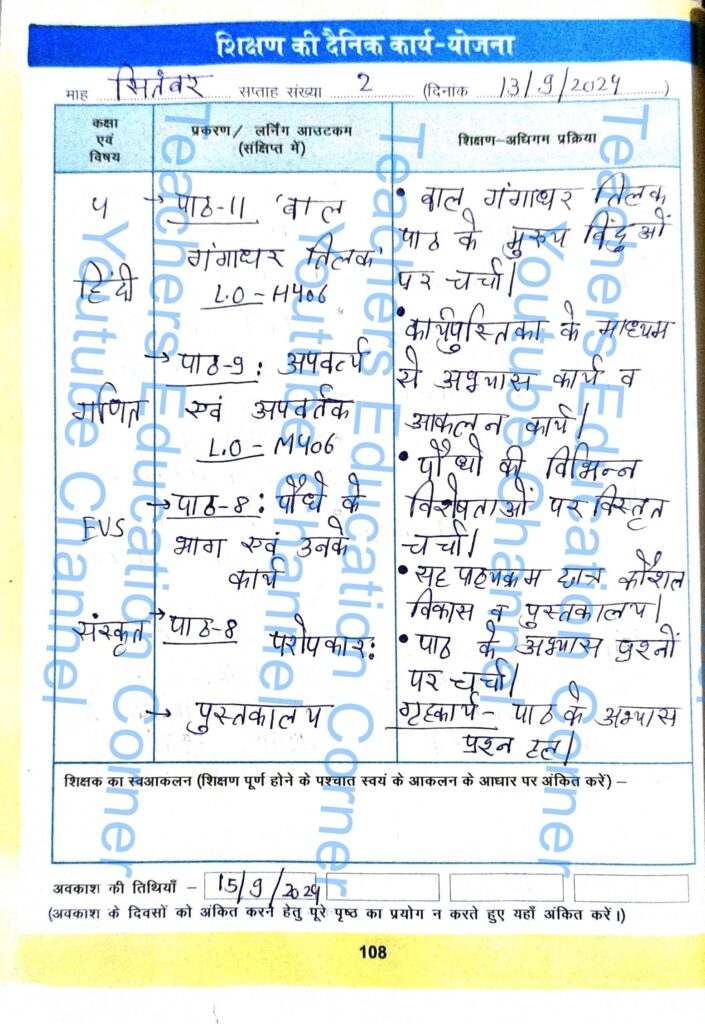 शिक्षण की दैनिक कार्य-योजना
माह सितंबर सप्ताह संख्या 2 (दिनांक 13/9/2024)
कक्षा एवं विषय
प्रकरण/ लर्निंग आउटकम (संक्षिप्त में)
शिक्षण-अधिगम प्रक्रिया
५
हिंदी
→ पाठ-11 'बाल
गंगाधर तिलक'
L.O - H406
गणित
→ पाठ-9: अपवर्त्य
एवं अपवर्तक
L.O - M406
EVS
→ पाठ-8: पौधे के
भाग एवं उनके
कार्य
संस्कृत
→ पाठ-8 परोपकार:
→ पुस्तकालय
• बाल गंगाधर तिलक
पाठ के मुख्य बिंदुओं
पर चर्चा।
• कार्यपुस्तिका के माध्यम
से अभ्यास कार्य व
आकलन कार्य।
• पौधो की विभिन्न
विशेषताओं पर विस्तृत
चर्चा।
• सह पाठ्यक्रम छात्र कौशल
विकास व पुस्तकालय।
• पाठ के अभ्यास प्रश्नों
पर चर्चा।
गृहकार्य - पाठ के अभ्यास
प्रश्न हल।
शिक्षक का स्वआकलन (शिक्षण पूर्ण होने के पश्चात स्वयं के आकलन के आधार पर अंकित करें) –
अवकाश की तिथियाँ – 15/9/2024
(अवकाश के दिवसों को अंकित करने हेतु पूरे पृष्ठ का प्रयोग न करते हुए यहाँ अंकित करें।)
108
Teachers Education Corner
Youtube Channel
Teachers Education Corner
Youtube Channel